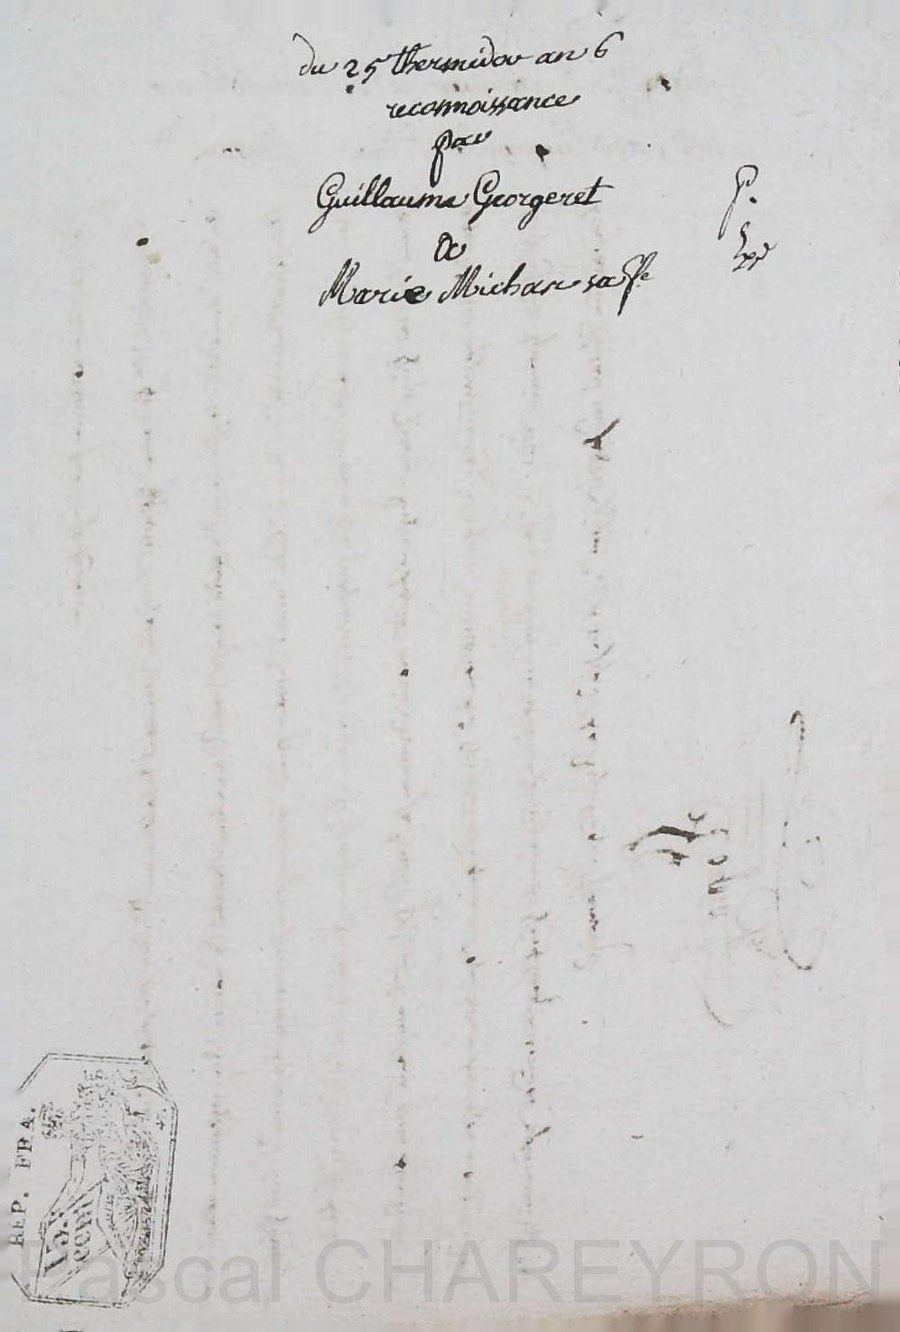 du 25 thermidor an 6
reconnoissance
par
Guillaume Georgeret
De
Marie Michar sa fe
P.
REP. FRA.
cent
Pascal CHAREYRON